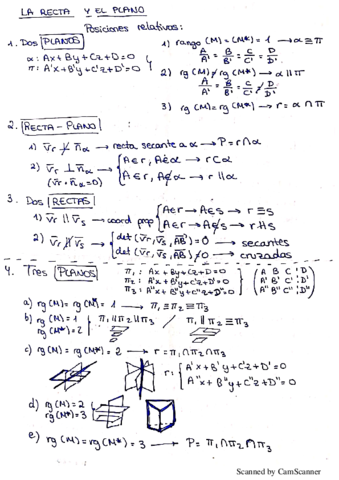 LA RECTA Y EL PLANO
Posiciones relativas:
1. Dos PLANOS
α: Ax + By + Cz + D = 0
π: A'x + B'y + C'z + D' = 0
1) rango(M) = (M*) = 1 → α ≡ π
A/A' = B/B' = C/C' = D/D'
2) rg(M) ≠ rg(M*) → α ∥ π
A/A' = B/B' = C/C' ≠ D/D'
3) rg(M) = rg(M*) → r = α ∩ π
2. RECTA - PLANO
1) v̄r ⊥̸ n̄α → recta secante a α → P = r ∩ α
2) v̄r ⊥ n̄α → { A∈r, A∈α → r ⊂ α
(v̄r · n̄α = 0) { A∈r, A∉α → r ∥ α
3. Dos RECTAS
1) v̄r ∥ v̄s → coord prop { A∈r → A∈s → r ≡ s
{ A∈r → A∉s → r ∥ s
2) v̄r ∦ v̄s → { det(v̄r, v̄s, AB) = 0 → secantes
{ det(v̄r, v̄s, AB) ≠ 0 → cruzadas
4. Tres PLANOS
π1: Ax + By + Cz + D = 0
π2: A'x + B'y + C'z + D' = 0
π3: A''x + B''y + C''z + D'' = 0
(A B C ¦ D)
(A' B' C' ¦ D')
(A'' B'' C'' ¦ D'')
a) rg(M) = rg(M*) = 1 → π1 ≡ π2 ≡ π3
b) rg(M) = 1 π1 ∥ π2 ∥ π3 π1 ∥ π2 ≡ π3
rg(M*) = 2
c) rg(M) = rg(M*) = 2 → r = π1 ∩ π2 ∩ π3
r: { A'x + B'y + C'z + D' = 0
{ A''x + B''y + C''z + D'' = 0
d) rg(M) = 2
rg(M*) = 3
e) rg(M) = rg(M*) = 3 → P = π1 ∩ π2 ∩ π3
Scanned by CamScanner